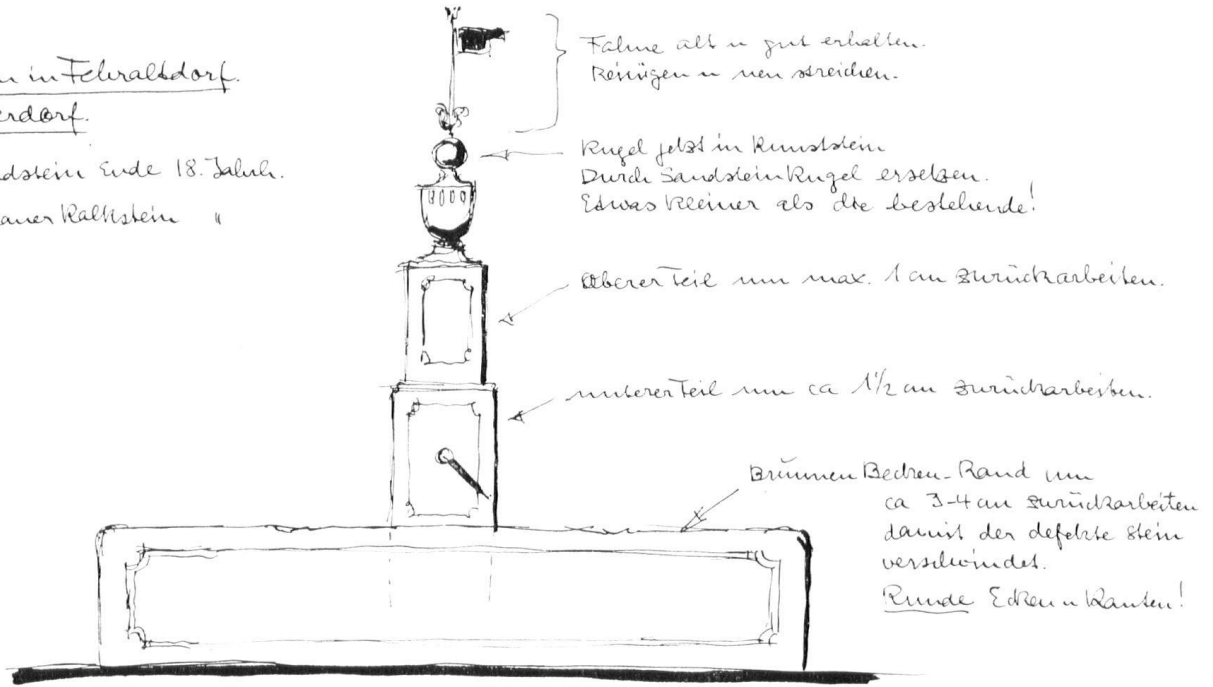 n in Fehraltdorf.
erdorf.
dstein Ende 18. Jahrh.
auer Kalkstein "
Fahne alt u gut erhalten.
Reinigen u neu streichen.
Kugel jetzt in Kunststein
Durch Sandstein Kugel ersetzen.
Etwas kleiner als die bestehende!
Oberer Teil um max. 1 cm zurückarbeiten.
unterer Teil um ca 1½ cm zurückarbeiten.
Brunnen Becken-Rand um
ca 3-4 cm zurückarbeiten
damit der defekte Stein
verschwindet.
Runde Ecken u Kanten!